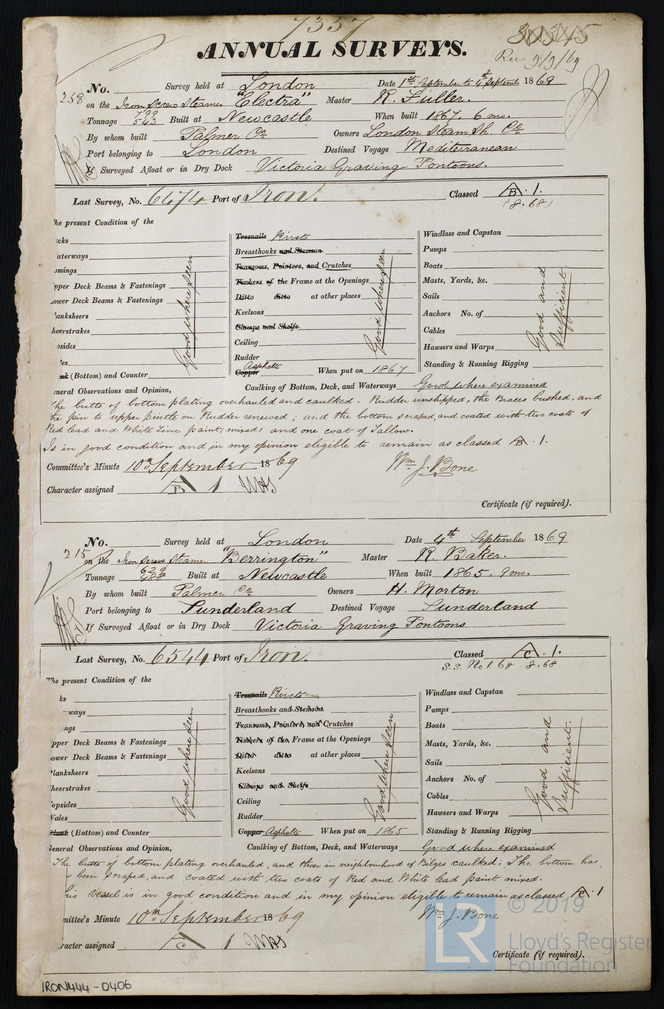 7357
30545
ANNUAL SURVEYS.
Rec 9/9/69
258
No. Survey held at London Date 1st September to 4th Septemb 1869
on the Iron Screw Steamer "Electra" Master R. Fuller.
Tonnage 799 543 Built at Newcastle When built 1867. 6 mo.
By whom built Palmer Co Owners London Steam Sh. Co
Port belonging to London Destined Voyage Mediterranean
If Surveyed Afloat or in Dry Dock Victoria Graving Pontoons.
Last Survey, No. 6474 Port of Iron. Classed A B. 1.
(8.68)
he present Condition of the
cks
aterways
omings
pper Deck Beams & Fastenings
ower Deck Beams & Fastenings
lanksheers
heerstrakes
opsides
les
ank (Bottom) and Counter
Good where seen
Treenails Rivets
Breasthooks and Stemson
Transoms, Pointers, and Crutches
Timbers of the Frame at the Openings
Ditto ditto at other places
Keelsons
Clamps and Shelfs
Ceiling
Rudder
Copper Asphalte When put on 1867
Good where seen
Windlass and Capstan
Pumps
Boats
Masts, Yards, &c.
Sails
Anchors No. of
Cables
Hawsers and Warps
Standing & Running Rigging
Good and Sufficient.
eneral Observations and Opinion, Caulking of Bottom, Deck, and Waterways Good where examined
The butts of bottom plating overhauled and caulked. Rudder unshipped, the Braces bushed, and
the pin to upper pintle on Rudder renewed; and the bottom scraped, and coated with two coats of
Red lead and White Zinc paint, mixed; and one coat of Tallow.
Is in good condition and in my opinion eligible to remain as classed A B. 1.
Committee's Minute 10th September 1869 Wm J. Bone
Character assigned A B 1
Certificate (if required).
215
No. Survey held at London Date 4th September 1869
on the Iron Screw Steamer "Berrington" Master R Baker.
Tonnage Built at Newcastle When built 1865. 9 mo.
By whom built Palmer Co Owners H. Morton
Port belonging to Sunderland Destined Voyage Sunderland
If Surveyed Afloat or in Dry Dock Victoria Graving Pontoons
Last Survey, No. 6544 Port of Iron. Classed A C. 1.
S.S. No 1 68 - 8.68
he present Condition of the
ks
rways
ngs
pper Deck Beams & Fastenings
ower Deck Beams & Fastenings
lanksheers
heerstrakes
opsides
Wales
Plank (Bottom) and Counter
Good where seen
Treenails Rivets
Breasthooks and Stemson
Transoms, Pointers, and Crutches
Timbers of the Frame at the Openings
Ditto ditto at other places
Keelsons
Clamps and Shelfs
Ceiling
Rudder
Copper Asphalte When put on 1865
Good where seen
Windlass and Capstan
Pumps
Boats
Masts, Yards, &c.
Sails
Anchors No. of
Cables
Hawsers and Warps
Standing & Running Rigging
Good and Sufficient.
General Observations and Opinion, Caulking of Bottom, Deck, and Waterways Good where examined
The butts of bottom plating overhauled, and those in neighbourhood of Bilges caulked; The bottom has
been scraped, and coated with two coats of Red and White lead paint mixed.
his vessel is in good condition and in my opinion eligible to remain as classed A C. 1
mittee's Minute 10th September 1869 Wm J. Bone
aracter assigned A C 1
Certificate (if required).
LR © 2019
Lloyd's Register
Foundation
IRON444-0406